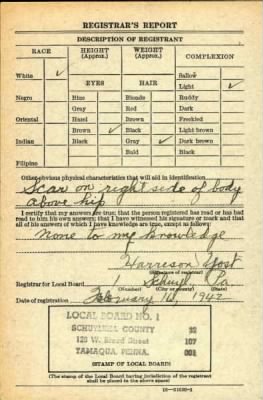 REGISTRAR'S REPORT
DESCRIPTION OF REGISTRANT
RACE
HEIGHT (Approx.)
WEIGHT (Approx.)
COMPLEXION
White ✓
EYES
HAIR
Sallow
Light ✓
Negro
Blue
Blonde
Ruddy
Gray
Red
Dark
Oriental
Hazel
Brown
Freckled
Brown ✓
Black
Light brown
Indian
Black
Gray ✓
Dark brown
Bald
Black
Filipino
Other obvious physical characteristics that will aid in identification
Scar on right side of body
above hip
I certify that my answers are true; that the person registered has read or has had
read to him his own answers; that I have witnessed his signature or mark and that
all of his answers of which I have knowledge are true, except as follows:
None to my knowledge
Harrison
(Signature of registrar)
Registrar for Local Board 1 Schuyl. Pa.
(Number) (City or county) (State)
Date of registration February 16, 1942
LOCAL BOARD NO. 1
SCHUYLKILL COUNTY 32
123 W. Broad Street 107
TAMAQUA, PENNA. 001
(STAMP OF LOCAL BOARD)
(The stamp of the Local Board having jurisdiction of the registrant
shall be placed in the above space)